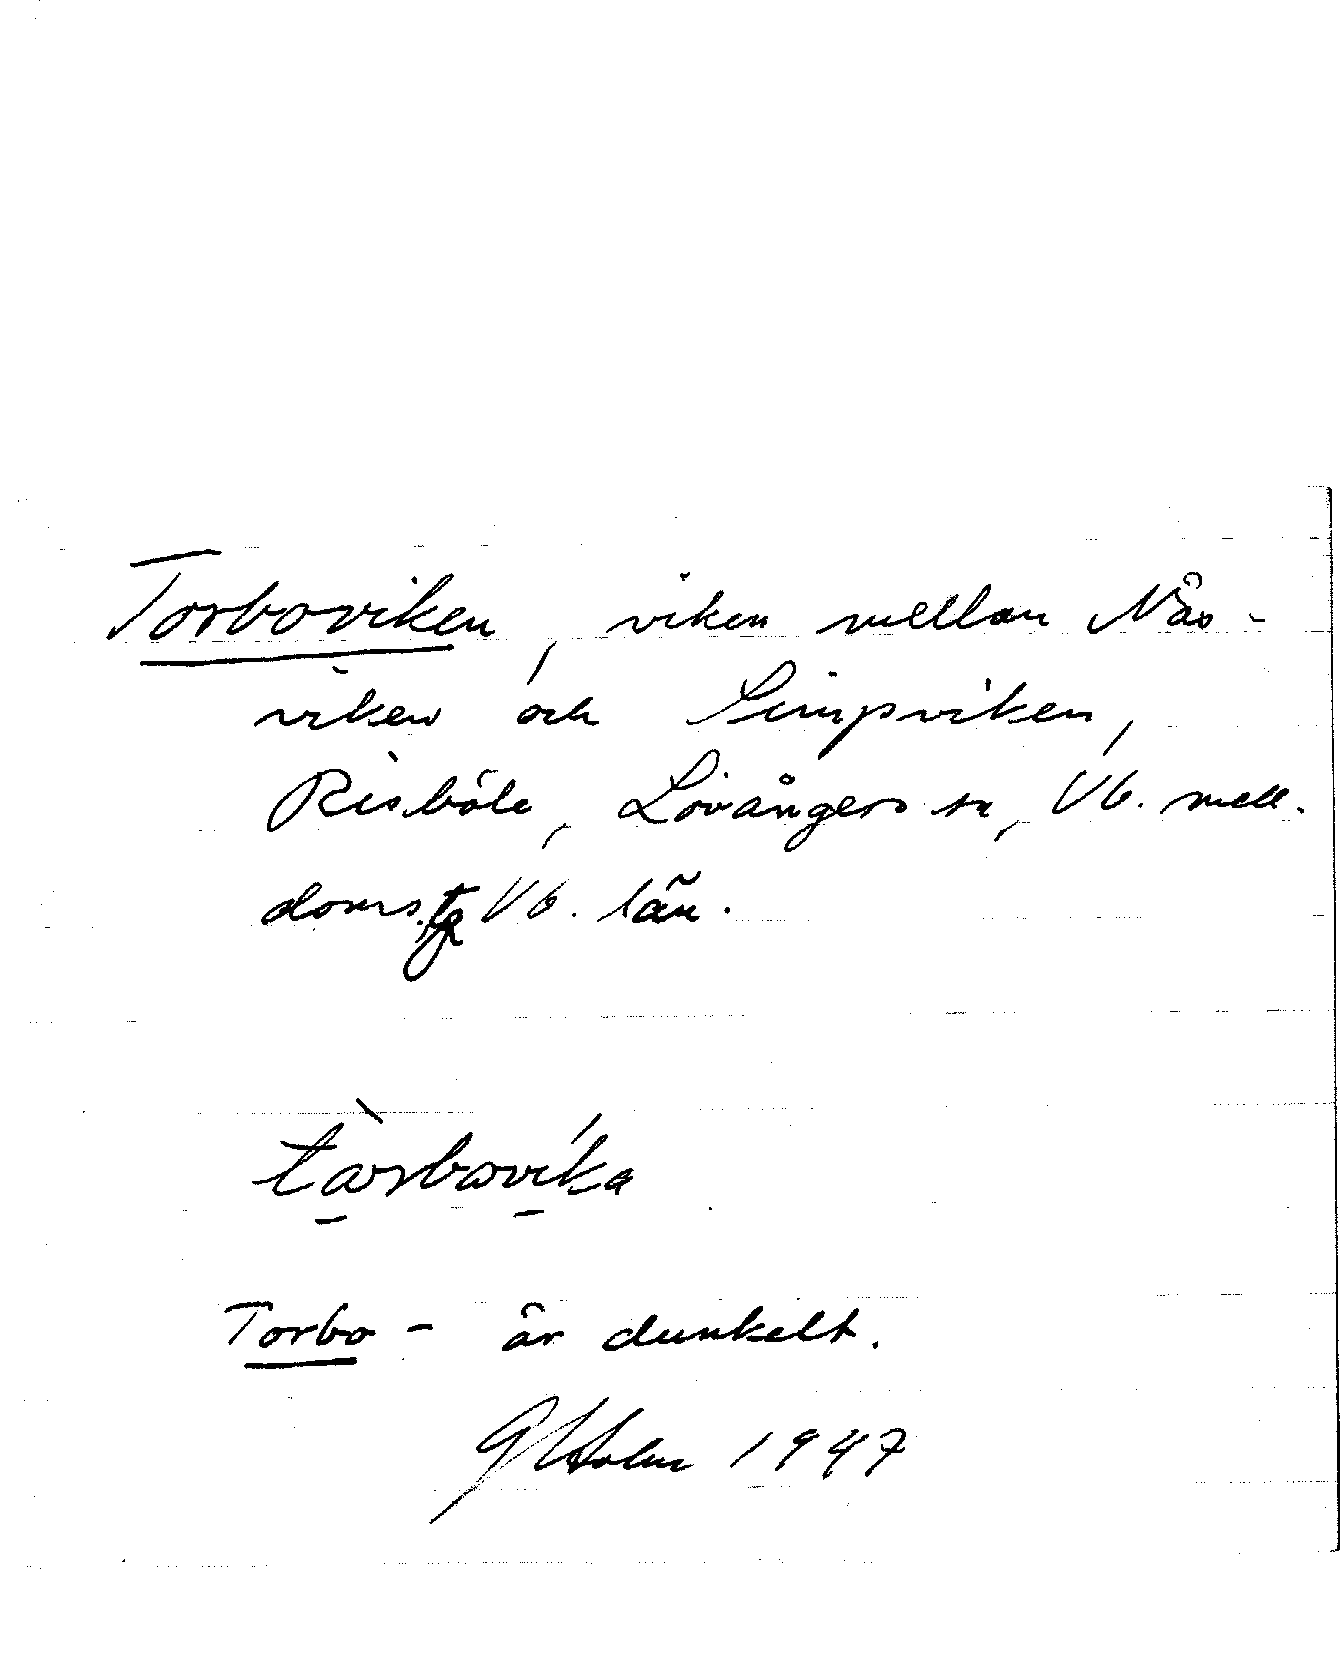 Torboviken, viken mellan Näs-
viken och Simpviken,
Risböle, Lövångers sn, Vb. mell.
doms. Vb. län.
Torbo - är dunkelt.
GHolm 1947